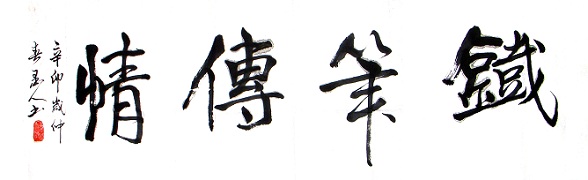 鐵筆傳情
辛卯歲仲
春人书